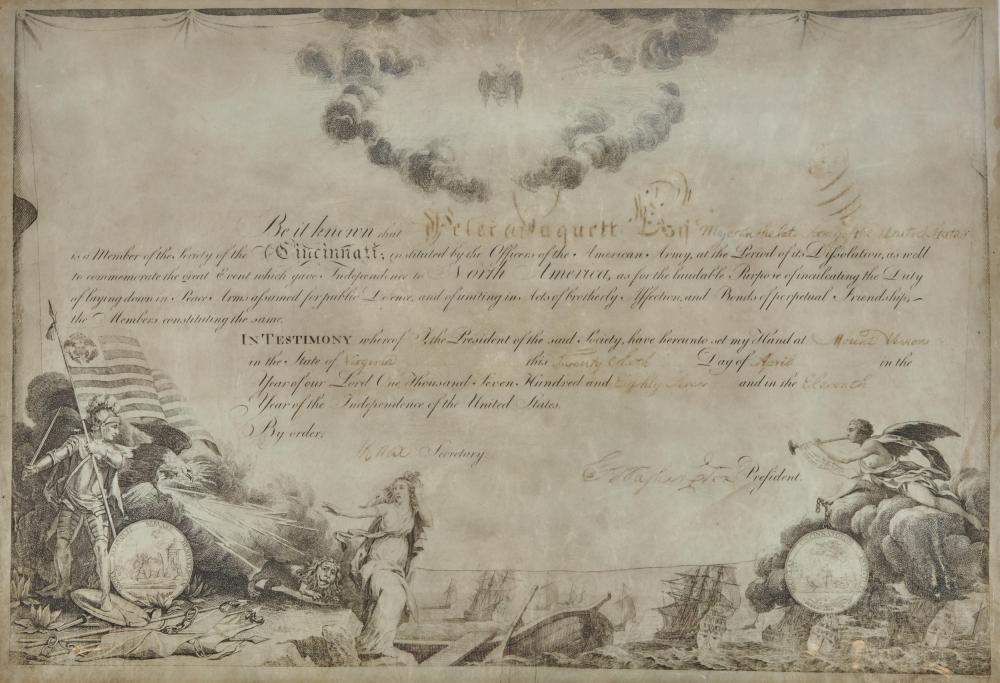 Be it known that Peter Faquett Esqr Major in the late Army of the United States
is a Member of the Society of the Cincinnati; instituted by the Officers of the American Army, at the Period of its Dissolution, as well
to commemorate the great Event which gave Independence to North America, as for the laudable Purpose of inculcating the Duty
of laying down in Peace Arms assumed for public Defence, and of uniting in Acts of brotherly Affection, and Bonds of perpetual Friendship,
the Members constituting the same.
IN TESTIMONY whereof I, the President of the said Society, have hereunto set my Hand at Mount Vernon
in the State of Virginia this Day of April in the
Year of our Lord One Thousand Seven Hundred and Eighty Seven and in the Eleventh
Year of the Independence of the United States.
By order,
H Knox Secretary.
G Washington President.